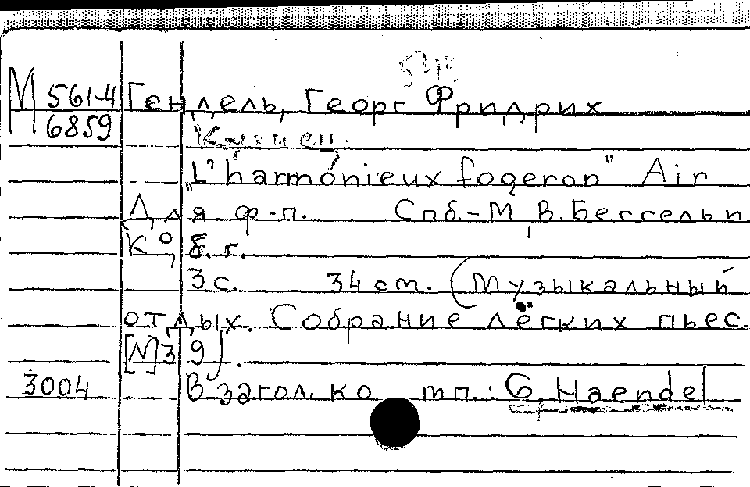 М 561-4 Гендель, Георг Фридрих
6859
Кузнец.
"L'harmónieux fogeron" Air
Для ф-п. Спб-М, В. Бессель и
К°, б. г.
3 с. 34 см. (Музыкальный
отдых. Собрание лёгких пьес.
[N] 39).
3004 В загол. ко тп.: G. Haendel